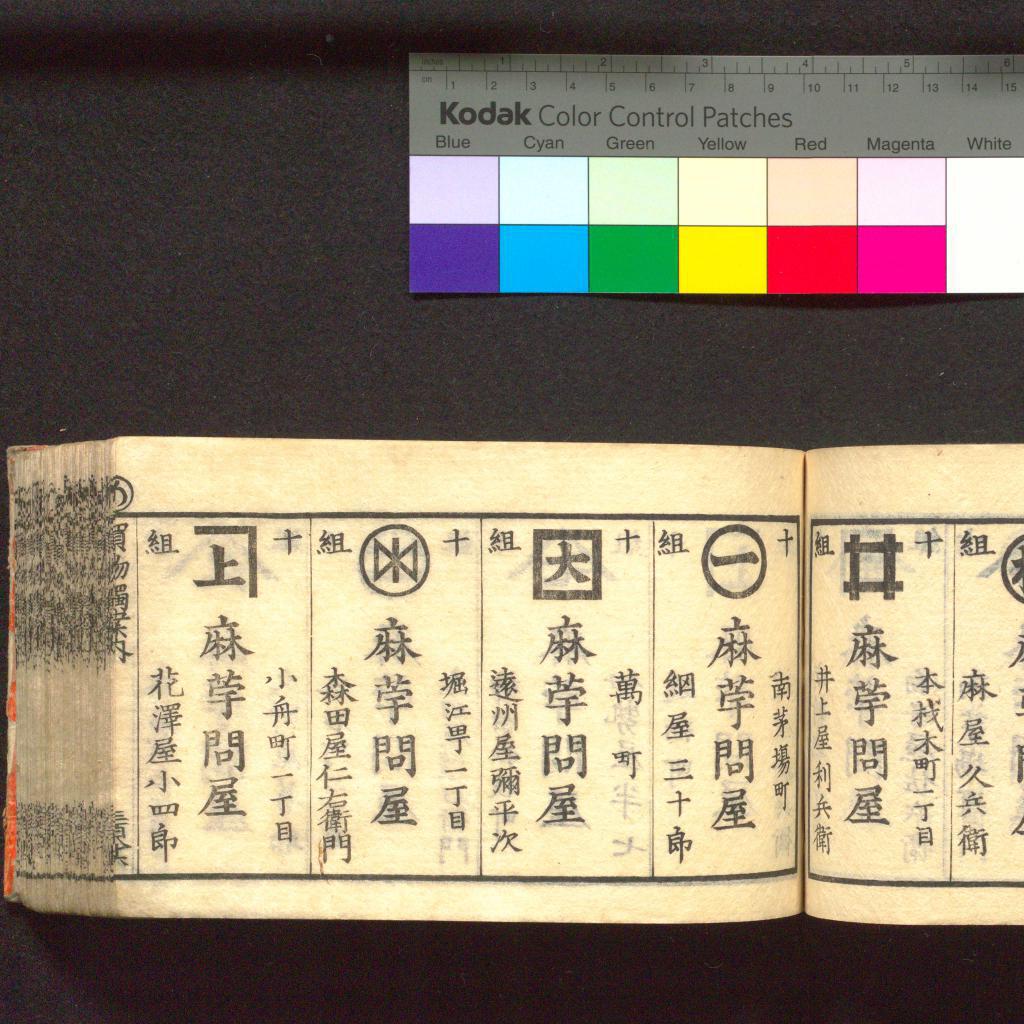 inches 1 2 3 4 5 6
cm 1 2 3 4 5 6 7 8 9 10 11 12 13 14 15
Kodak Color Control Patches
Blue Cyan Green Yellow Red Magenta White
組
麻屋久兵衛
十
本材木町一丁目
麻苧問屋
組
井上屋利兵衛
十
南茅場町
一
麻苧問屋
組
綱屋三十郎
十
萬町
大
麻苧問屋
組
遠州屋彌平次
十
堀江町一丁目
麻苧問屋
組
森田屋仁右衛門
十
小舟町一丁目
上
麻苧問屋
組
花澤屋小四郎